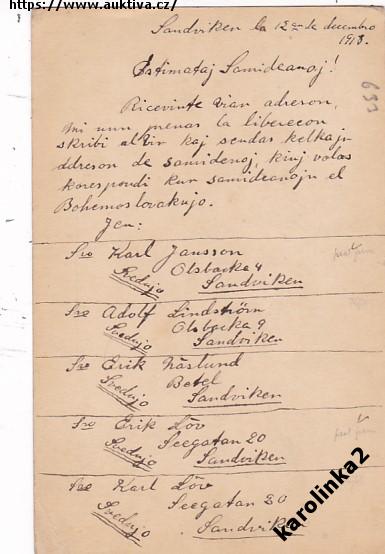 https://www.auktiva.cz/
Sandviken la 12an de decembro
1918.
Estimataj Samideanoj!
Ricevinte vian adreson,
mi nun prenas la liberecon
skribi al vir kaj sendas kelkajn
adreson de samidenoj, kiuj volas
korespondi kun samideanojn el
Bohemoslovakujo.
Jen:
633
Sro Karl Jansson
Olsbacka 4
Svedujo Sandviken
Sro Adolf Lindström
Olsbacka 9
Svedujo Sandviken
Sro Erik Näslund
Betel
Svedujo Sandviken
Sro Erik Löv
Seegatan 20
Svedujo Sandviken
Sro Karl Löv
Seegatan 20
Svedujo Sandviken
karolinka2